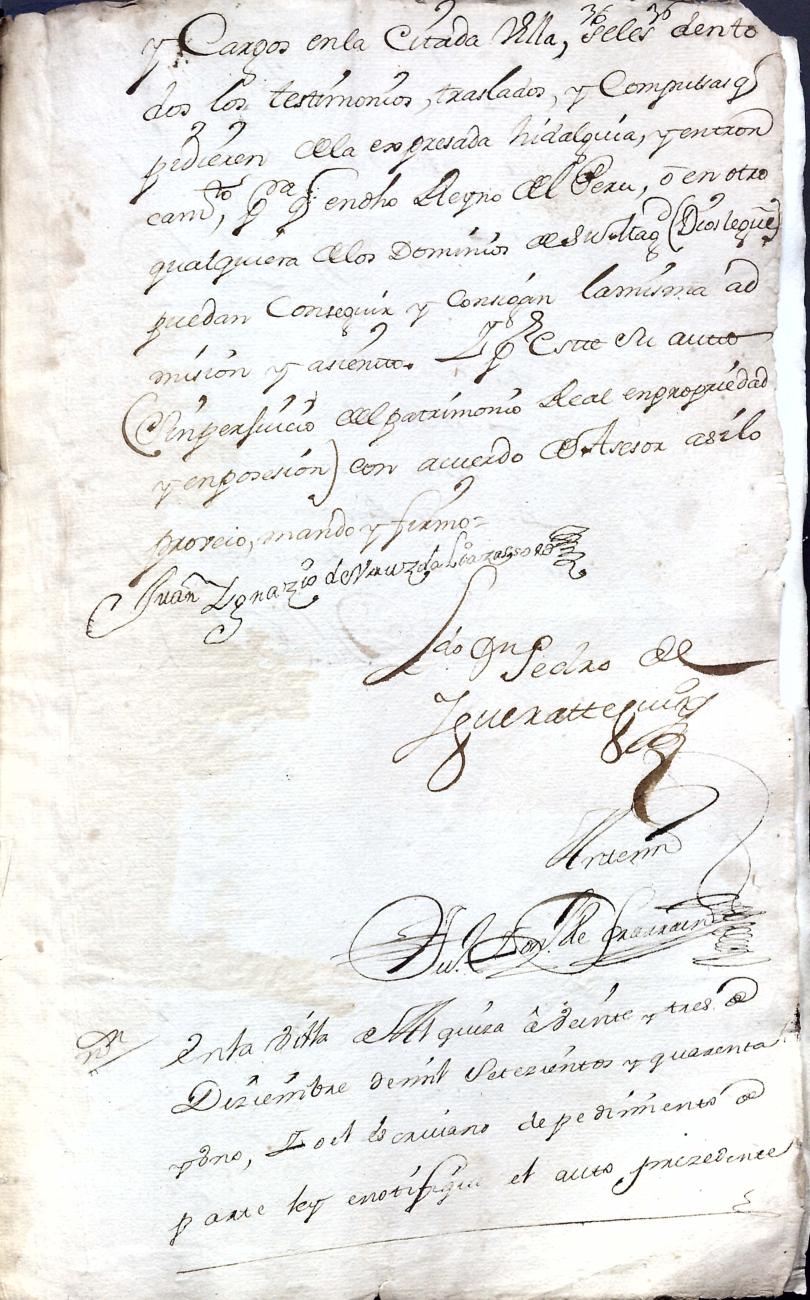 y Cargos enla Citada Villa, seles dento
dos los testimonios, traslados, y Compulsas q
pidieren dela expresada hidalguia, y entron
camto, pra q endho Reyno del Peru, o en otro
qualquiera delos Dominios de su Magd (Dios legue)
puedan Conseguir y Consigan lamisma ad
mision y asiento. Y pr Este su auto
(Sinperjuicio del patrimonio Real enpropriedad
y enposesion) con acuerdo de Asesor asi lo
proveio, mando y firmo=
Juan Ygnazio de
Ldo Dn Pedro de
Antemi
Juo. Bon. de
nn
Enla Villa de â Veinte y tres de
Diziembre demil Setezientos y quarenta
y Uno, Yo el Escrivano de pedimento de
parte ley enotifiqui el auto prezedente